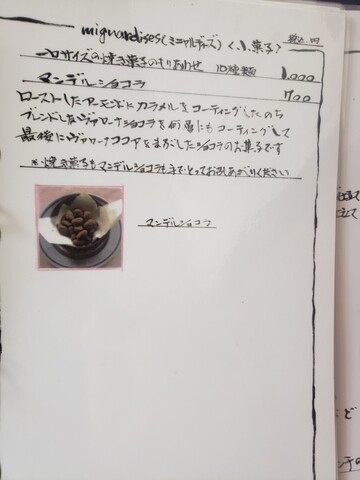 mignardises(ミニャルディーズ)<小菓子> 税込.円
一口サイズの焼き菓子のもりあわせ 10種類 1,000
マンデルショコラ 700
ローストしたアーモンドにカラメルをコーティングしたのち
ブレンドしたヴァローナショコラを何層にもコーティングして
最後にヴァローナココアをまぶしたショコラのお菓子です
*焼き菓子もマンデルショコラも手でとってお召しあがりください
マンデルショコラ